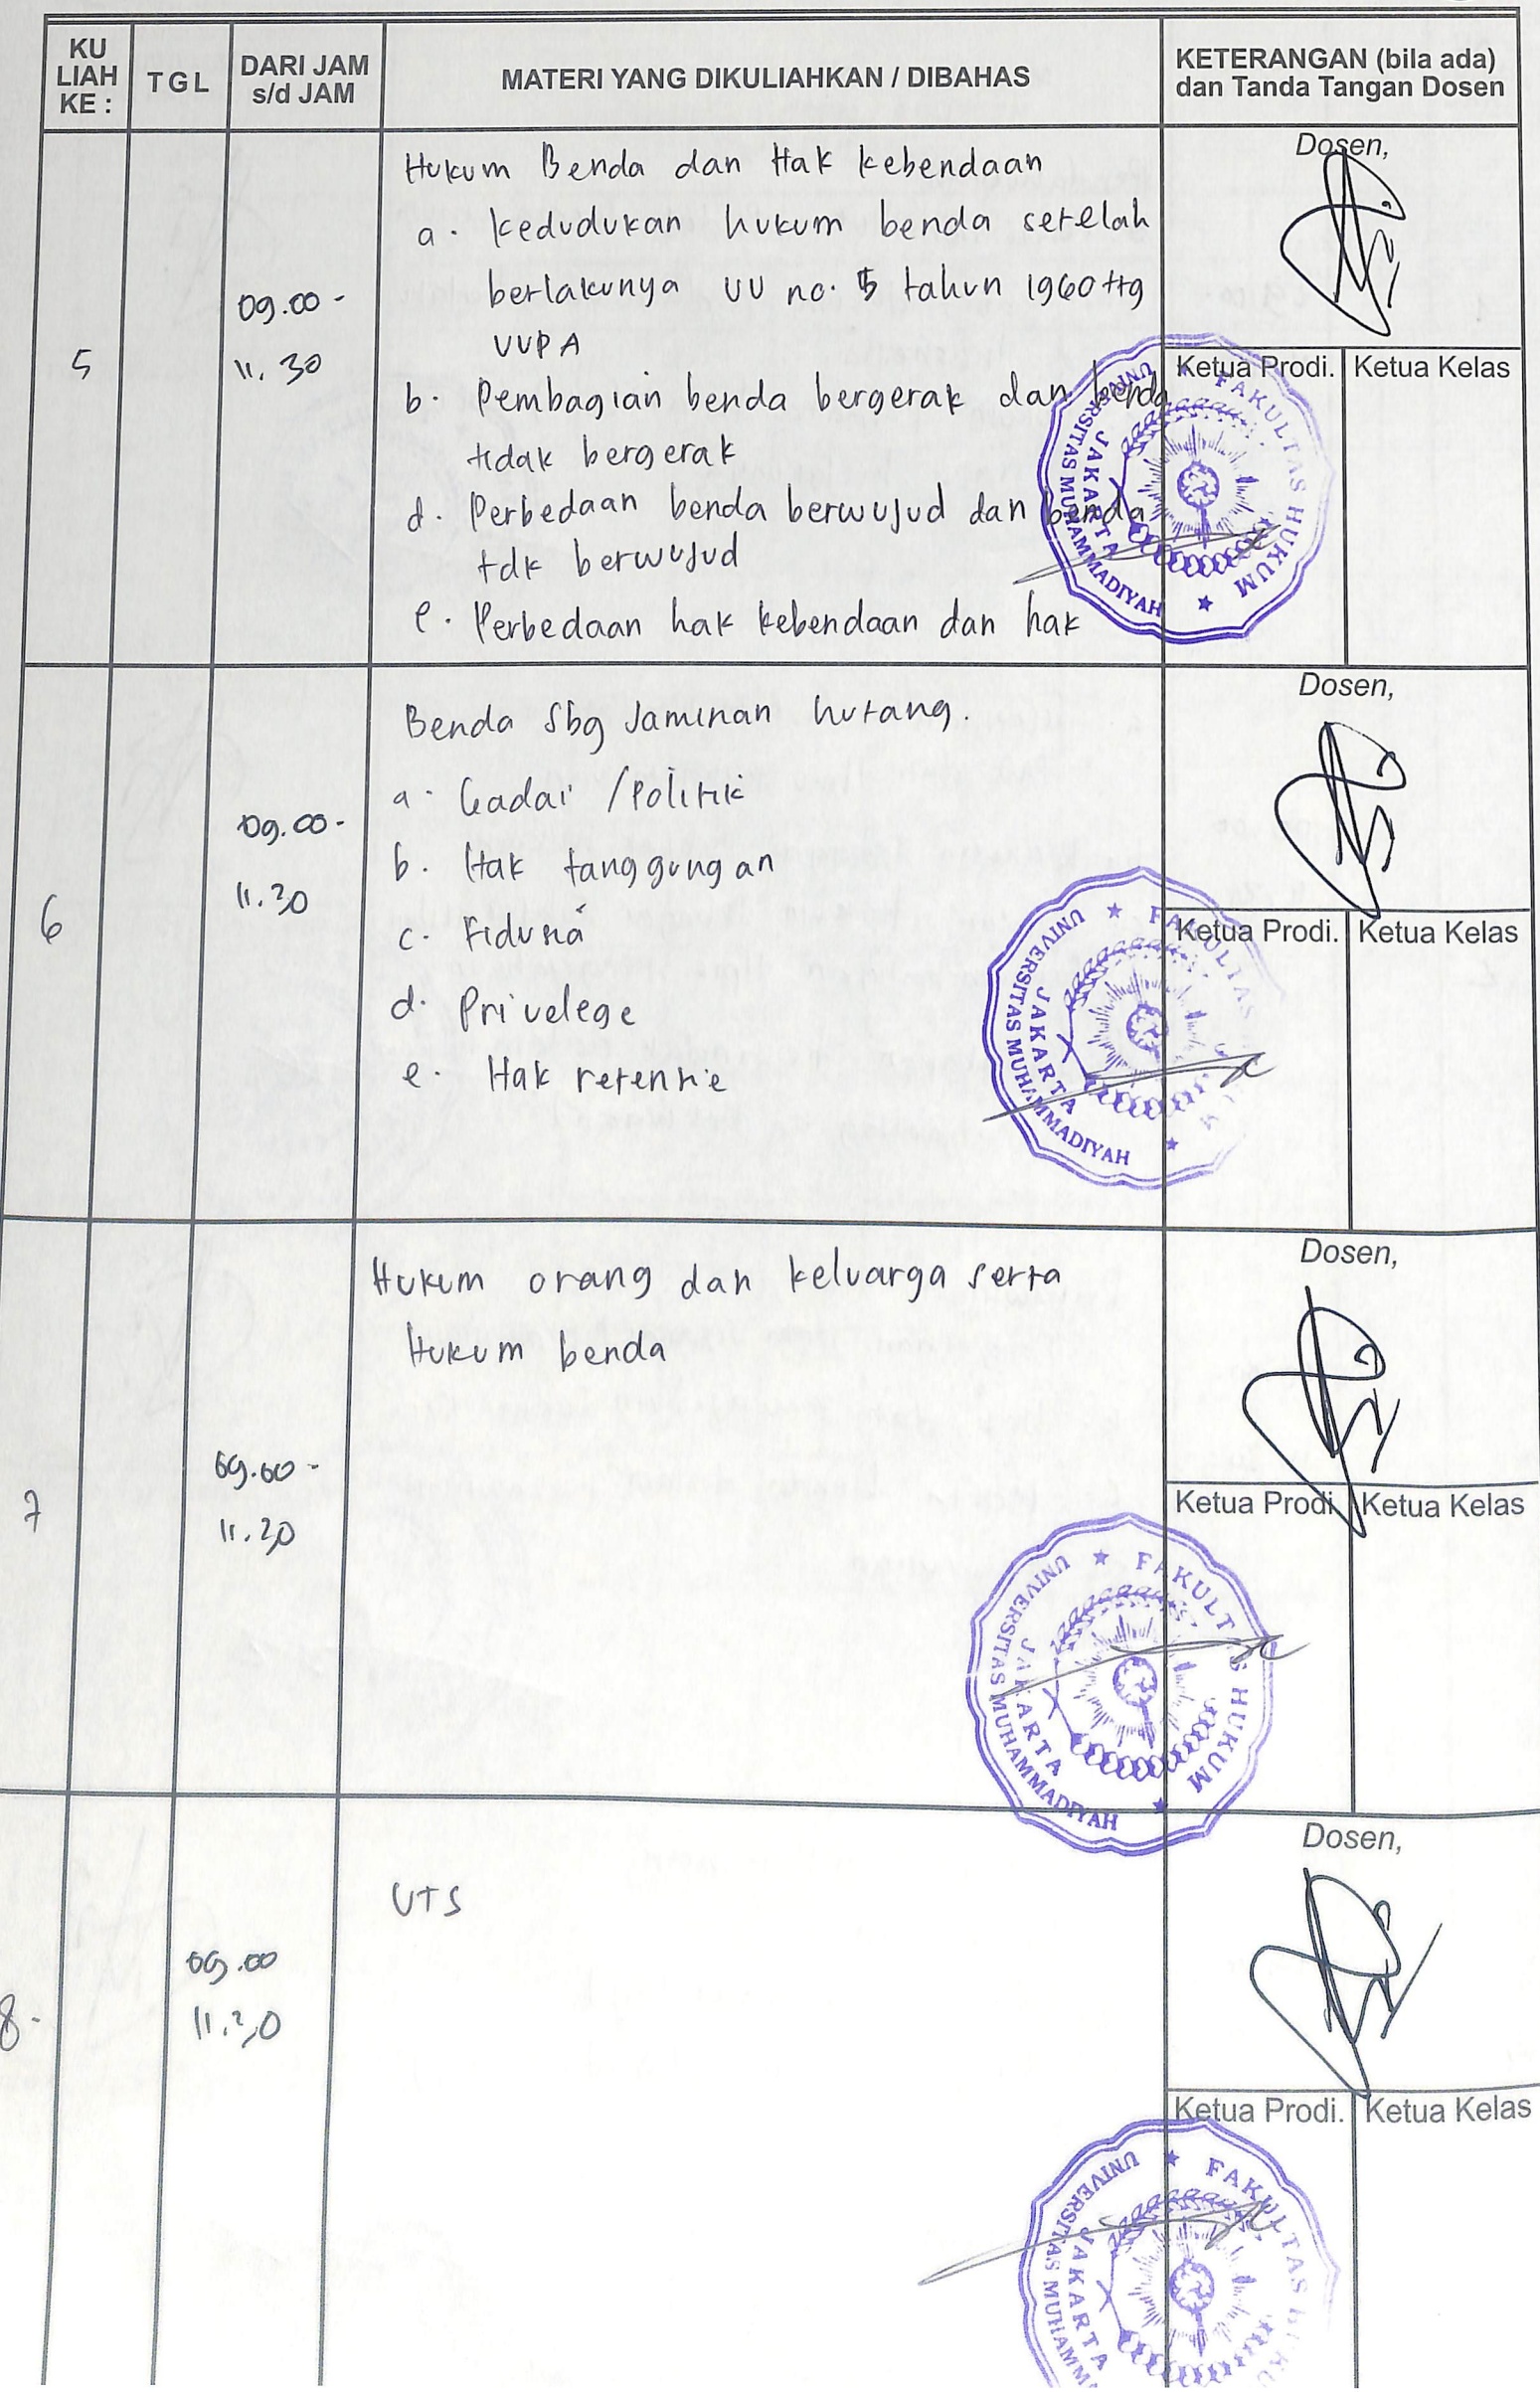 KU
LIAH
KE :
TGL
DARI JAM
s/d JAM
MATERI YANG DIKULIAHKAN / DIBAHAS
KETERANGAN (bila ada)
dan Tanda Tangan Dosen
5
09.00 -
11.30
Hukum Benda dan Hak kebendaan
a. kedudukan hukum benda setelah
berlakunya UU no. 5 tahun 1960 ttg
UUPA
b. Pembagian benda bergerak dan benda
tidak bergerak
d. Perbedaan benda berwujud dan benda
tdk berwujud
e. Perbedaan hak kebendaan dan hak
Dosen,
Ketua Prodi.
Ketua Kelas
FAKULTAS HUKUM
UNIVERSITAS MUHAMMADIYAH
JAKARTA
6
09.00 -
11.30
Benda sbg Jaminan hutang.
a. Gadai / Politik
b. Hak tanggungan
c. Fidusia
d. Privelege
e. Hak retentie
Dosen,
Ketua Prodi.
Ketua Kelas
FAKULTAS
UNIVERSITAS MUHAMMADIYAH
JAKARTA
7
09.00 -
11.30
Hukum orang dan keluarga serta
Hukum benda
Dosen,
Ketua Prodi
Ketua Kelas
FAKULTAS HUKUM
UNIVERSITAS MUHAMMADIYAH
JAKARTA
8.
09.00
11.30
UTS
Dosen,
Ketua Prodi.
Ketua Kelas
FAKULTAS HUKU
UNIVERSITAS MUHAMM
JAKARTA